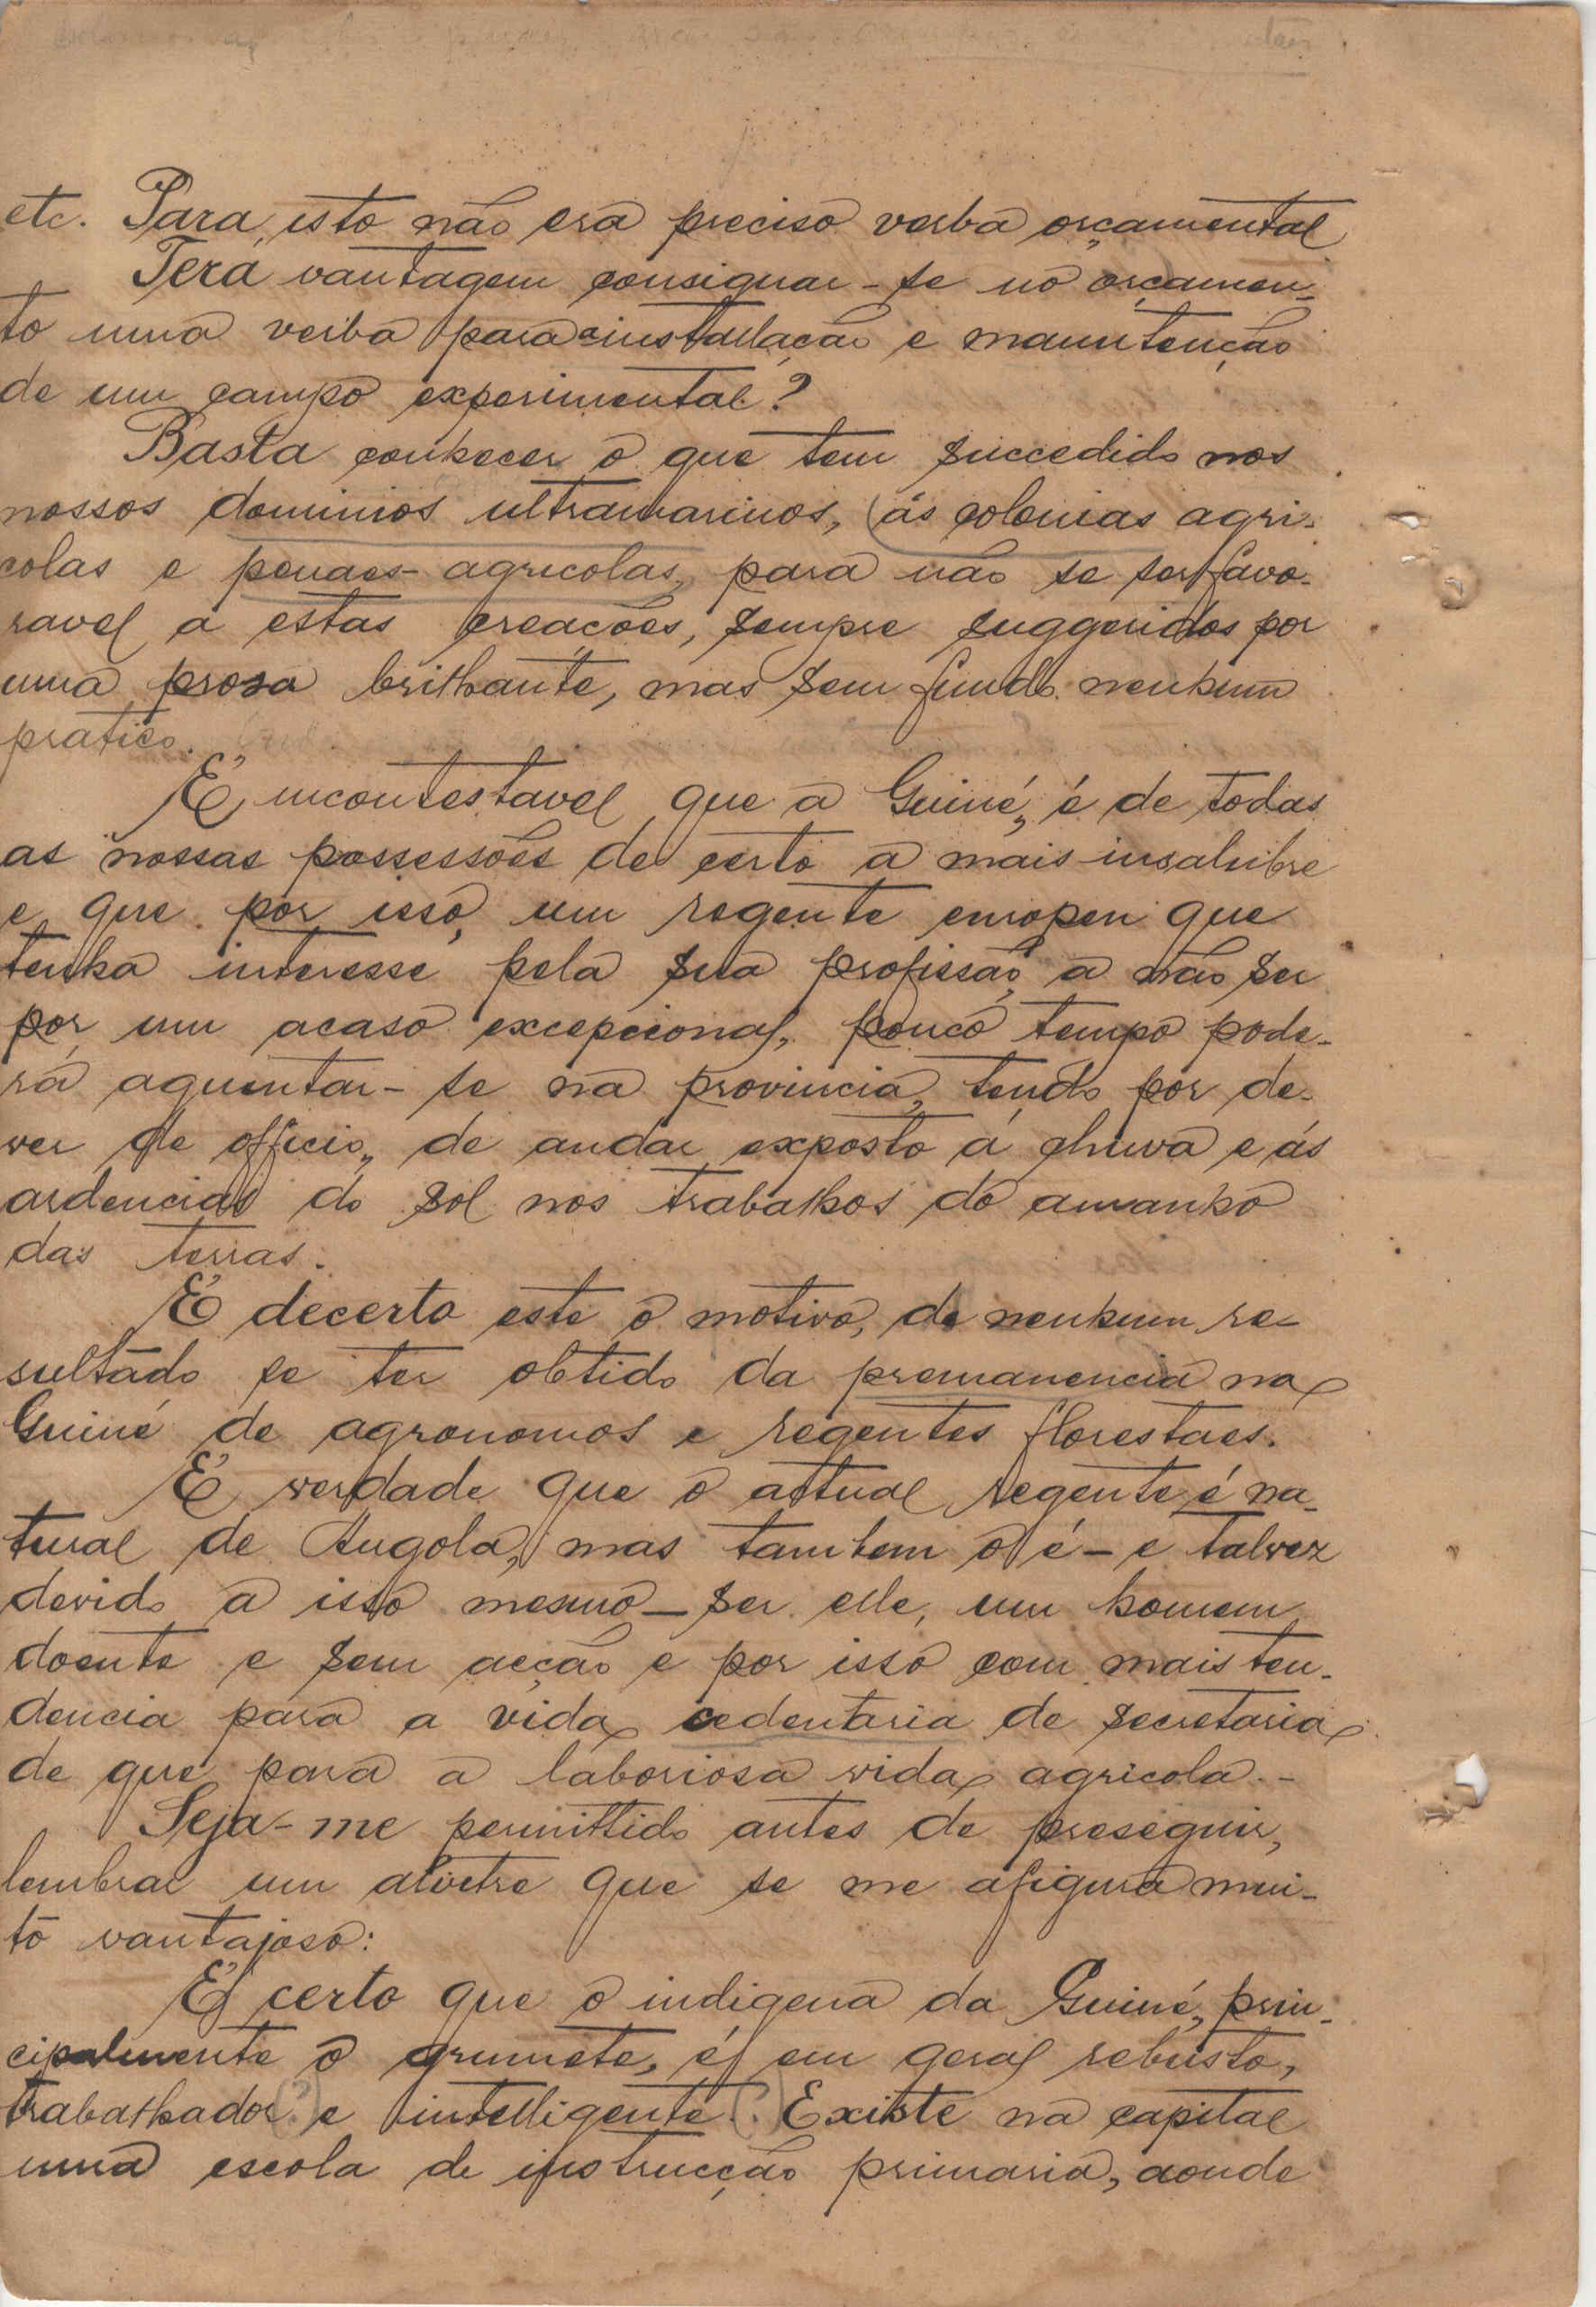 etc. Para isto não era preciso verba orçamental
Tera vantagem consignar-se no orçamen-
to uma verba para installação e manutenção
de um campo experimental?
Basta conhecer o que tem succedido nos
nossos dominios ultramarinos, ás colonias agri-
colas e penaes-agricolas, para não se ser favo-
ravel a estas creacões, sempre suggeridos por
uma prosa brilhante, mas sem fundo nenhum
pratico.
É incontestavel que a Guiné, é de todas
as nossas possessões de certo a mais insalubre
e que por isso, um regente europeu que
tenha interesse pela sua profissão, a não ser
por um acaso excepcional, pouco tempo pode-
rá aguentar-se na provincia, tendo por de-
ver de officio, de andar exposto á chuva e ás
ardencias do sol nos trabalhos do amanho
das terras.
É decerto este o motivo, de nenhum re-
sultado se ter obtido da premanencia na
Guiné de agronomos e regentes florestaes.
É verdade que o actual regente é na-
tural de Angola, mas tambem o é - e talvez
devido a isso mesmo - ser elle, um homem
doente e sem acção e por isso com mais ten-
dencia para a vida cedentaria de secretaria
de que para a laboriosa vida agricola.-
Seja-me permittido antes de preseguir,
lembrar um alvitre que se me afigura mui-
to vantajoso:
É certo que o indigena da Guiné, prin-
cipalmente o grumete, é em geral rebusto,
trabalhador (?) e intelligente (?). Existe na capital
uma escola de instrucção primaria, aonde